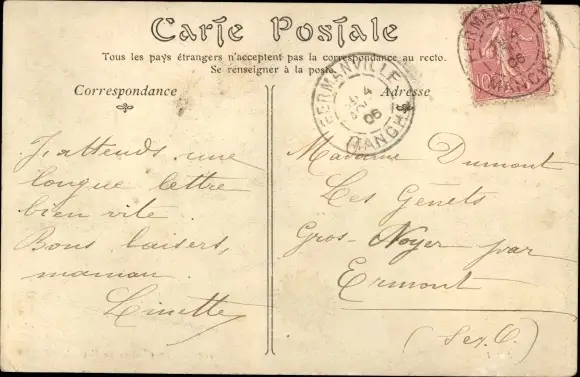 Carte Postale
Tous les pays étrangers n'acceptent pas la correspondance au recto.
Se renseigner à la poste.
Correspondance
Adresse
FERMANVILLE
4
06
MANCHE
FERMANVILLE
06
MANCHE
10
J'attends une
longue lettre
bien vite.
Bons baisers,
maman.
Linette
Madame Dumont
Les Genêts
Gros-Noyer par
Ermont
(S. et. O.)